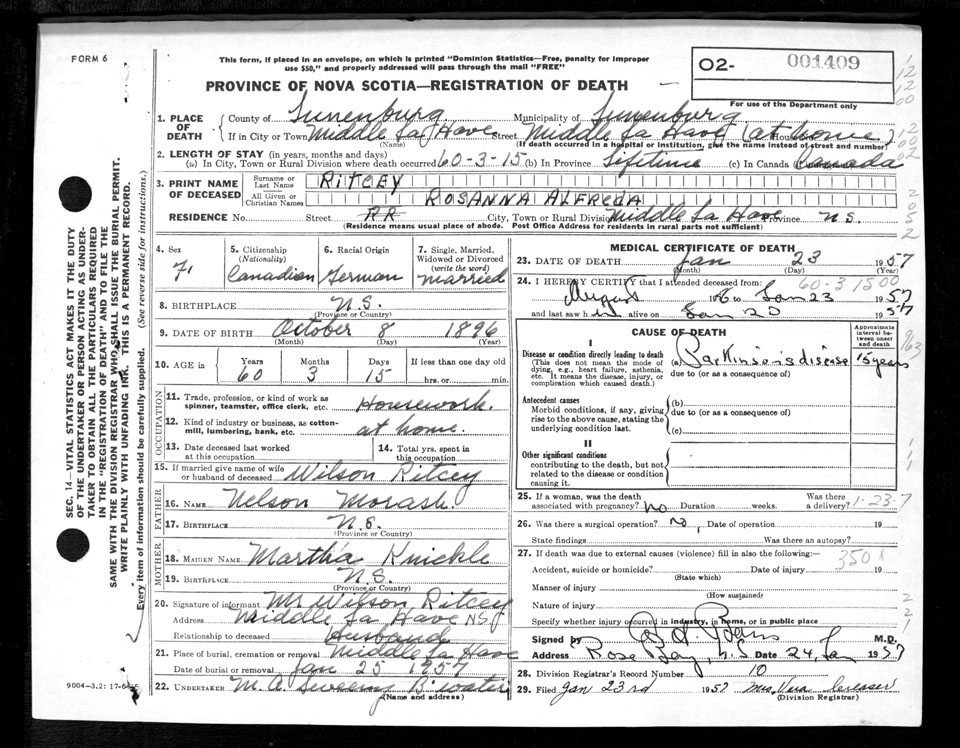 FORM 6
This form, if placed in an envelope, on which is printed "Dominion Statistics—Free, penalty for improper
use $50," and properly addressed will pass through the mail "FREE"
O2- 001409
PROVINCE OF NOVA SCOTIA—REGISTRATION OF DEATH
For use of the Department only
1. PLACE OF DEATH
County of Lunenburg Municipality of Lunenburg
If in City or Town Middle La Have Street Middle La Have (at home)
(Name) (If death occurred in a hospital or institution, give the name instead of street and number)
2. LENGTH OF STAY (in years, months and days)
(a) In City, Town or Rural Division where death occurred 60-3-15 (b) In Province Lifetime (c) In Canada Canada
3. PRINT NAME OF DECEASED
Surname or Last Name RITCEY
All Given or Christian Names ROSANNA ALFREDA
RESIDENCE No. Street RR City, Town or Rural Division Middle La Have Province N.S.
(Residence means usual place of abode. Post Office Address for residents in rural parts not sufficient)
4. Sex F.
5. Citizenship (Nationality) Canadian
6. Racial Origin German
7. Single, Married, Widowed or Divorced (write the word) married
8. BIRTHPLACE N.S.
(Province or Country)
9. DATE OF BIRTH October 8 1896
(Month) (Day) (Year)
10. AGE in Years 60 Months 3 Days 15 If less than one day old hrs. or min.
OCCUPATION
11. Trade, profession, or kind of work as spinner, teamster, office clerk, etc. Housework.
12. Kind of industry or business, as cotton-mill, lumbering, bank, etc. at home.
13. Date deceased last worked at this occupation
14. Total yrs. spent in this occupation
15. If married give name of wife or husband of deceased Wilson Ritcey
FATHER
16. NAME Nelson Morash
17. BIRTHPLACE N.S.
(Province or Country)
MOTHER
18. MAIDEN NAME Martha Knickle
19. BIRTHPLACE N.S.
(Province or Country)
20. Signature of informant Mr Wilson Ritcey
Address Middle La Have NS
Relationship to deceased Husband
21. Place of burial, cremation or removal Middle La Have
Date of burial or removal Jan 25 1957
22. UNDERTAKER M. A. Sweeny B'water
(Name and address)
9004-3.2: 17-6-
MEDICAL CERTIFICATE OF DEATH
23. DATE OF DEATH Jan 23 1957
(Month) (Day) (Year)
24. I HEREBY CERTIFY that I attended deceased from:
60-3 1500
August 1956 to Jan 23 1957
and last saw h alive on Jan 1957
CAUSE OF DEATH
Approximate interval between onset and death
I
Disease or condition directly leading to death (a) Parkinson's disease 15 years
(This does not mean the mode of dying, e.g., heart failure, asthenia, etc. It means the disease, injury, or complication which caused death.)
due to (or as a consequence of)
Antecedent causes (b)
Morbid conditions, if any, giving rise to the above cause, stating the underlying condition last.
due to (or as a consequence of)
(c)
II
Other significant conditions
contributing to the death, but not related to the disease or condition causing it.
25. If a woman, was the death associated with pregnancy? no Duration weeks. Was there a delivery?
1-23-7
26. Was there a surgical operation? no, Date of operation 19
State findings Was there an autopsy?
27. If death was due to external causes (violence) fill in also the following:—
350 X
Accident, suicide or homicide? Date of injury 19
(State which)
Manner of injury
(How sustained)
Nature of injury
Specify whether injury occurred in industry, in home, or in public place
Signed by M.D.
Address Rose Bay, N.S. Date 24 Jan 1957
28. Division Registrar's Record Number 10
29. Filed Jan 23rd 1957 Mrs. Vera
(Division Registrar)
SEC. 14—VITAL STATISTICS ACT MAKES IT THE DUTY
OF THE UNDERTAKER OR PERSON ACTING AS UNDER-
TAKER TO OBTAIN ALL THE PARTICULARS REQUIRED
IN THE "REGISTRATION OF DEATH" AND TO FILE THE
SAME WITH THE DIVISION REGISTRAR WHO SHALL ISSUE THE BURIAL PERMIT.
WRITE PLAINLY WITH UNFADING INK. THIS IS A PERMANENT RECORD.
Every item of information should be carefully supplied. (See reverse side for instructions.)